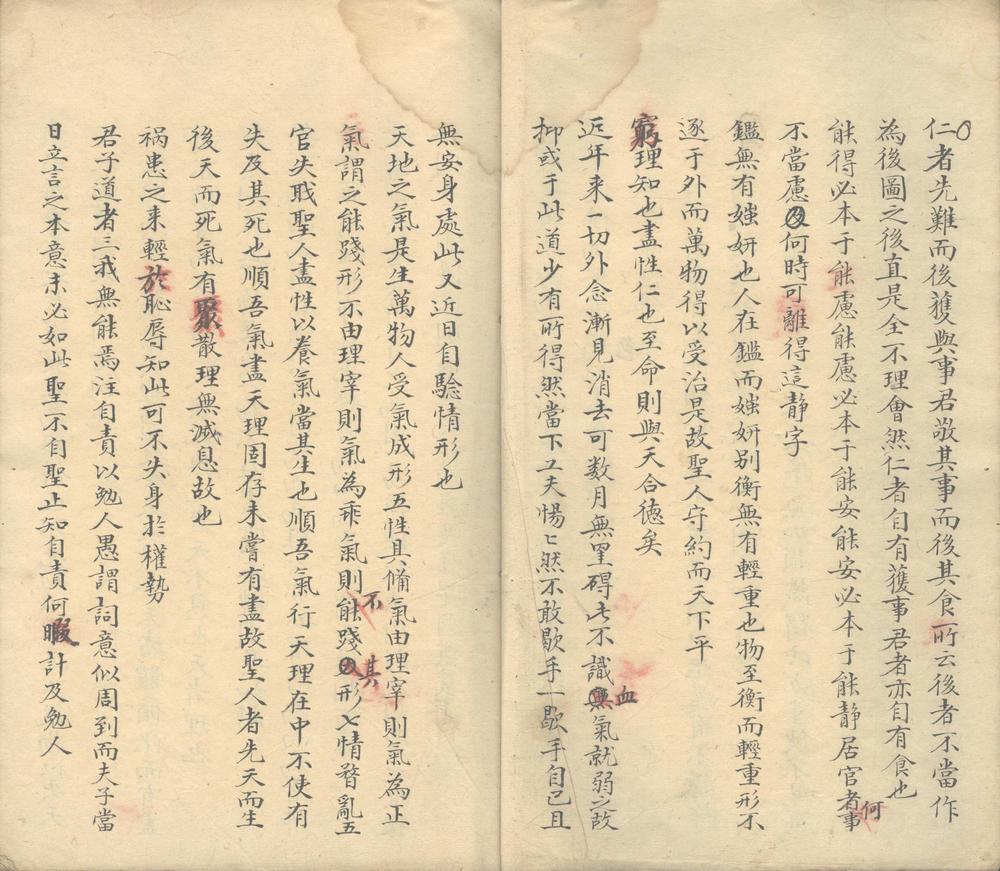 仁者先難而後獲與事君敬其事而後其食所云後者不當作
為後圖之後直是全不理會然仁者自有獲事君者亦自有食也
能得必本于能慮能慮必本于能安能安必本于能静居官者何事
不當慮何時可離得這静字
鑑無有媸妍也人在鑑而媸妍别衡無有輕重也物至衡而輕重形不
逐于外而萬物得以受治是故聖人守約而天下平
窮理知也盡性仁也至命則與天合德矣
近年来一切外念漸見消去可数月無罣碍此不識血氣就弱之故
抑或于此道少有所得然當下工夫惕〻然不敢歇手一歇手自己且
無安身處此又近日自驗情形也
天地之氣是生萬物人受氣成形五性具備氣由理宰則氣為正
氣謂之能踐形不由理宰則氣為乖氣則不能踐其形七情瞀亂五
官失職聖人盡性以養氣當其生也順吾氣行天理在中不使有
失及其死也順吾氣盡天理固存未嘗有盡故聖人者先天而生
後天而死氣有聚散理無滅息故也
禍患之来輕於恥辱知此可不失身於權勢
君子道者三我無能焉注自責以勉人愚謂詞意似周到而夫子當
日立言之本意未必如此聖不自聖止知自責何暇計及勉人